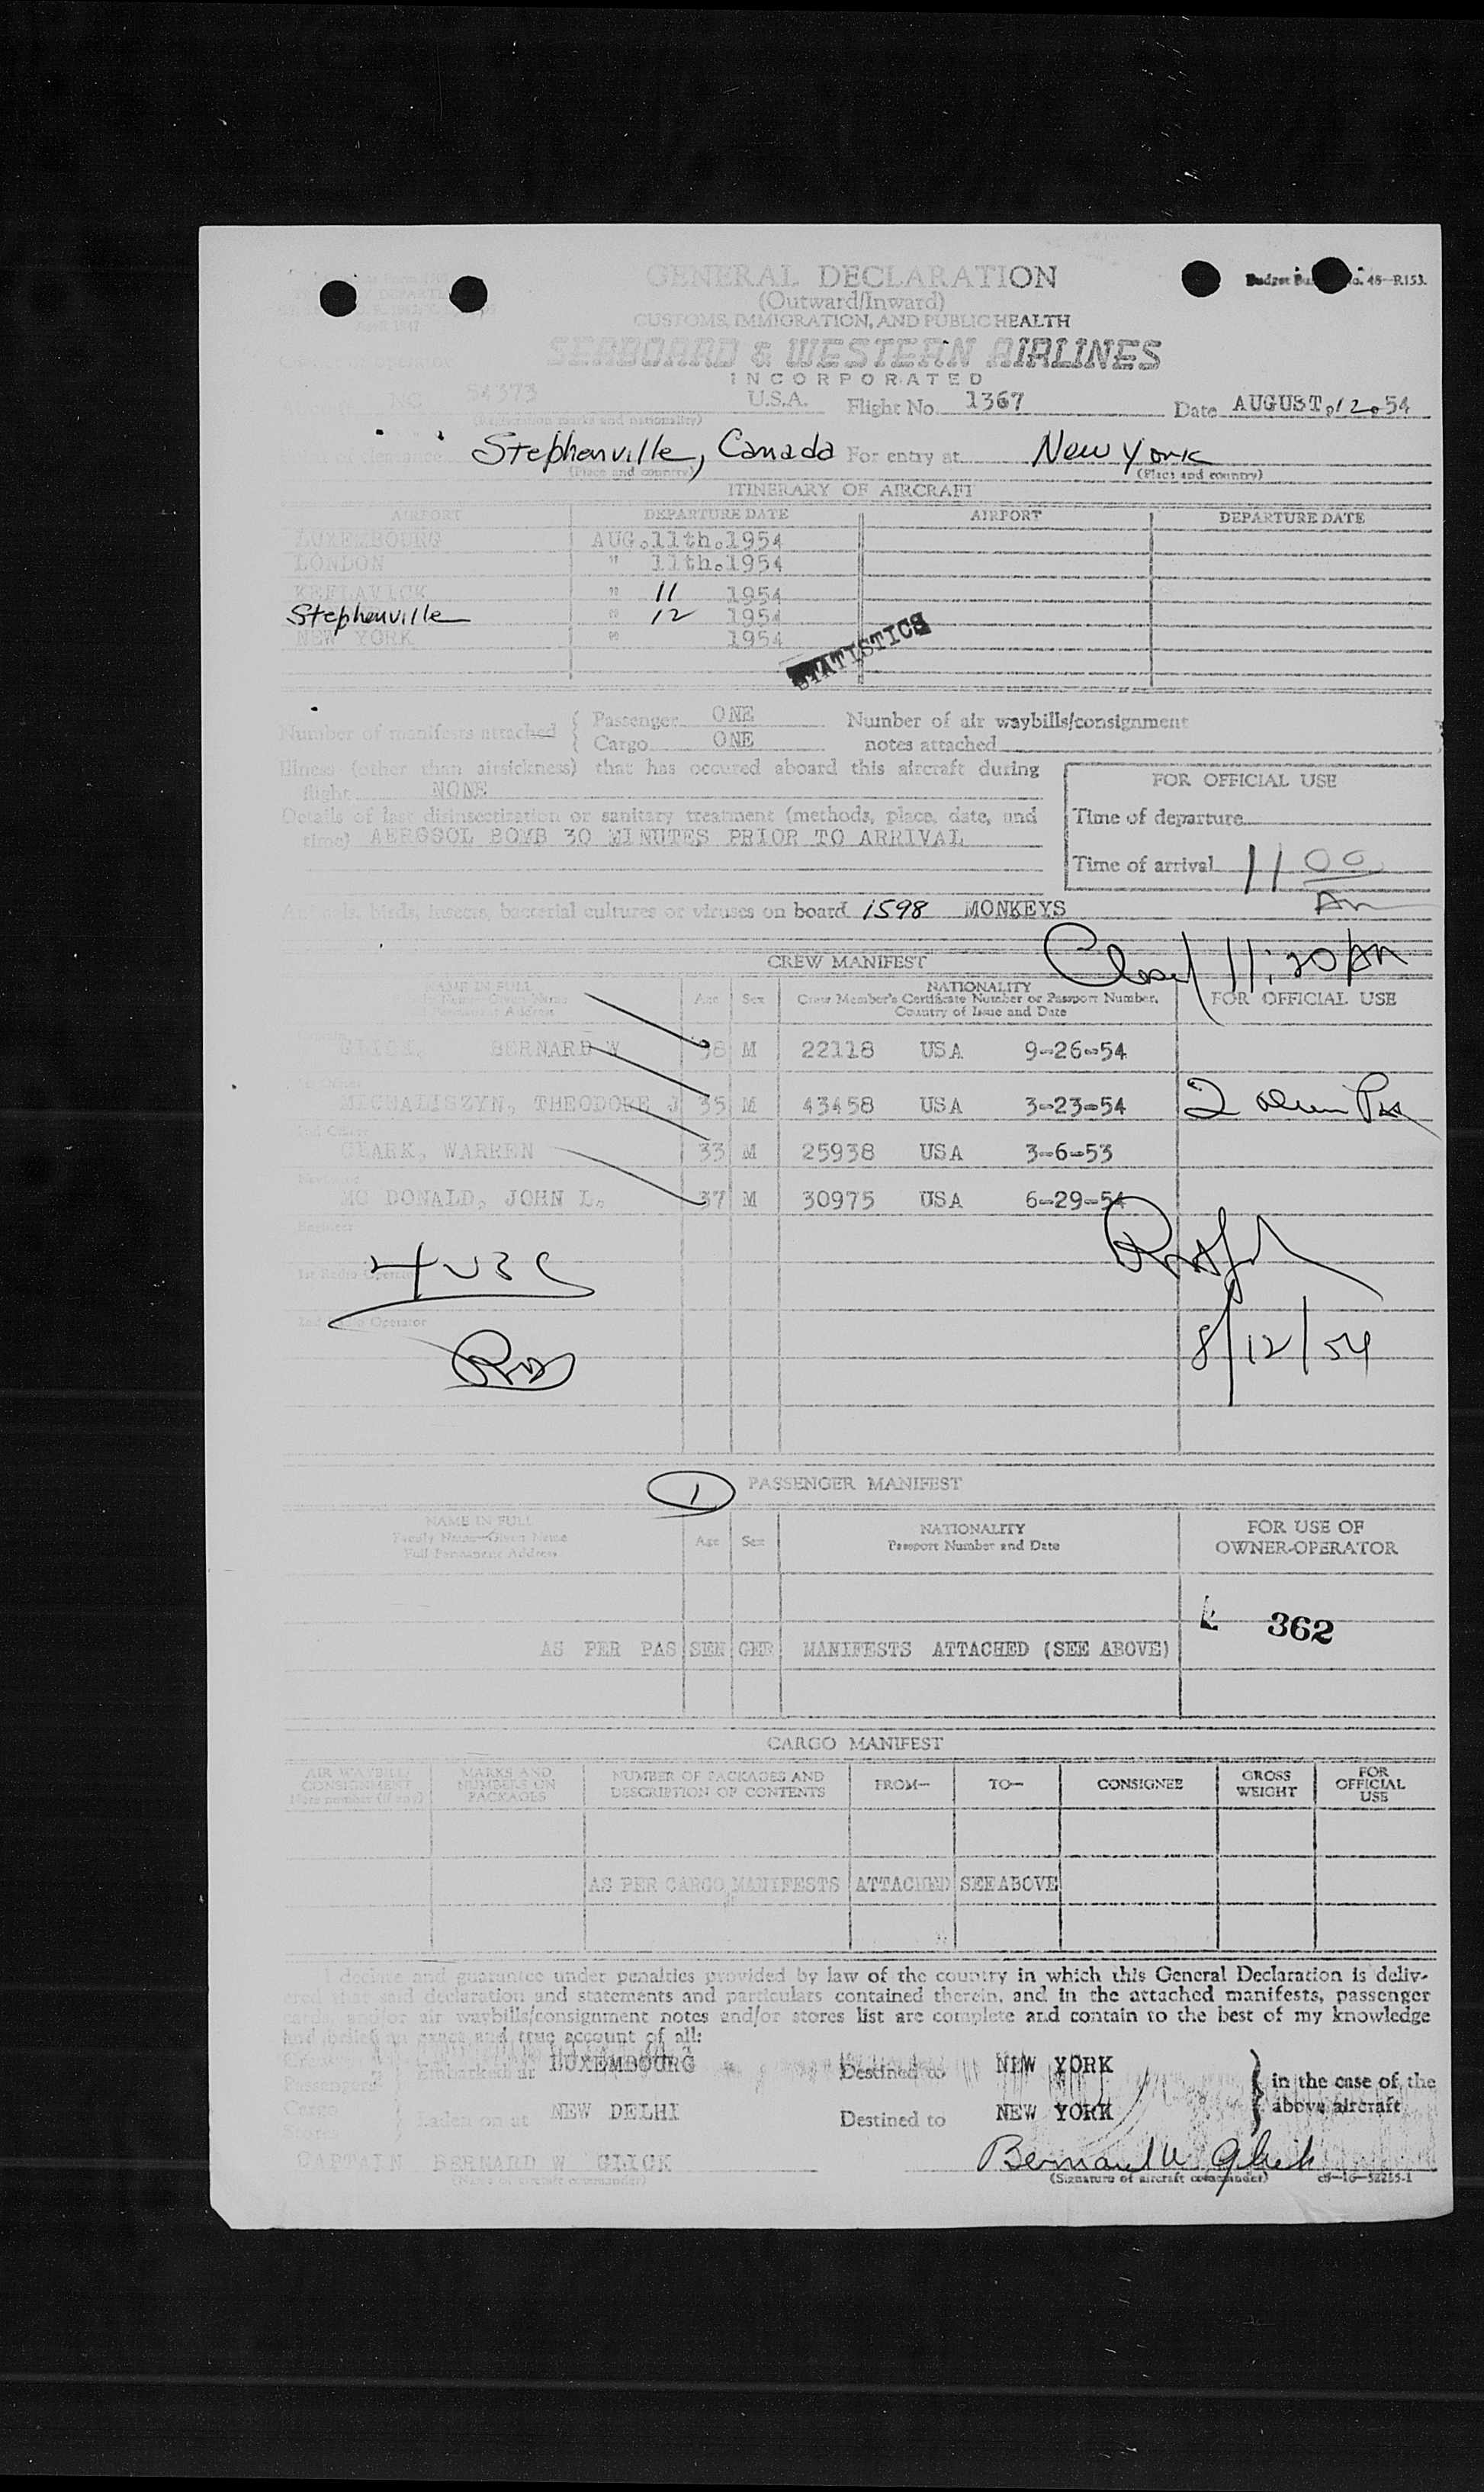 GENERAL DECLARATION
(Outward/Inward)
CUSTOMS, IMMIGRATION, AND PUBLIC HEALTH
No. 48-R153.
April 1947
SEABOARD & WESTERN AIRLINES
INCORPORATED
NC 54373 U.S.A. Flight No. 1367 Date AUGUST. 12. 54
(Registration marks and nationality)
Stephenville, Canada For entry at New York
(Place and country) (Place and country)
ITINERARY OF AIRCRAFT
AIRPORT DEPARTURE DATE AIRPORT DEPARTURE DATE
LUXEMBOURG AUG.11th.1954
LONDON " 11th.1954
KEFLAVICK " 11 1954
Stephenville " 12 1954
NEW YORK " 1954
STATISTICS
Number of manifests attached { Passenger ONE Number of air waybills/consignment
Cargo ONE notes attached
Illness (other than airsickness) that has occured aboard this aircraft during
flight NONE
FOR OFFICIAL USE
Details of last disinsectization or sanitary treatment (methods, place, date, and
time) AEROSOL BOMB 30 MINUTES PRIOR TO ARRIVAL
Time of departure
Time of arrival 11 00
AM
Animals, birds, insects, bacterial cultures or viruses on board 1598 MONKEYS
Closed 11:20 AM
CREW MANIFEST
NAME IN FULL Age Sex NATIONALITY FOR OFFICIAL USE
Crew Member's Certificate Number or Passport Number,
Country of Issue and Date
GLICK, BERNARD W 38 M 22118 USA 9-26-54
MICHALISZYN, THEODORE J 35 M 43458 USA 3-23-54 2
CLARK, WARREN 33 M 25938 USA 3-6-53
MC DONALD, JOHN L. 37 M 30975 USA 6-29-54
Engineer
4 USC
1st Radio Operator
2nd Radio Operator
8/12/54
1 PASSENGER MANIFEST
NAME IN FULL Age Sex NATIONALITY FOR USE OF
Family Name—Given Name Passport Number and Date OWNER-OPERATOR
Full Permanent Address
362
AS PER PAS SEN GER MANIFESTS ATTACHED (SEE ABOVE)
CARGO MANIFEST
AIR WAYBILL/ MARKS AND NUMBER OF PACKAGES AND FROM— TO— CONSIGNEE GROSS FOR
CONSIGNMENT NUMBERS ON DESCRIPTION OF CONTENTS WEIGHT OFFICIAL
Note number (if any) PACKAGES USE
AS PER CARGO MANIFESTS ATTACHED SEE ABOVE
I declare and guarantee under penalties provided by law of the country in which this General Declaration is deliv-
ered that said declaration and statements and particulars contained therein, and in the attached manifests, passenger
cards, and/or air waybills/consignment notes and/or stores list are complete and contain to the best of my knowledge
and belief an exact and true account of all:
Crew
Passengers } Embarked at LUXEMBOURG Destined to NEW YORK } in the case of the
Cargo
Stores } Laden on at NEW DELHI Destined to NEW YORK above aircraft
CAPTAIN BERNARD W GLICK Bernard W Glick
(Name of aircraft commander) (Signature of aircraft commander) c5—16—52255-1